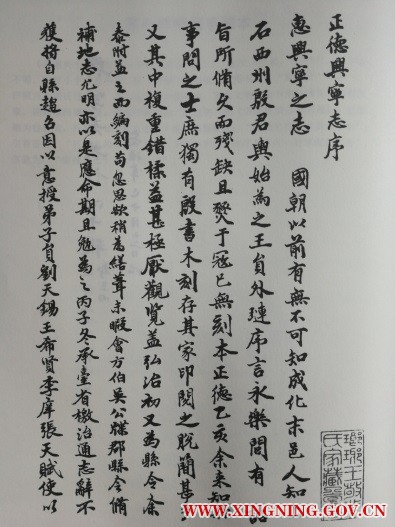 正德興寧志序
惠興寧之志 國朝以前有無不可知成化末邑人知
石西州殿君輿始為之王員外璉序言永樂間有 詔
旨所脩久而殘缺且燹于寇已無刻本正德乙亥余來知
事問之士庶獨有殿書木刻存其家印閱之脫簡甚
又其中複重錯糅益甚極厭觀覽蓋弘治初又為縣令
泰附益之而編刻苟忽思欲稍為繕葺未暇會方伯吳公牒郡縣令脩
補地志尤明亦以是應命期且勉為之丙子冬承臺省檄治通志辭不
獲將自縣趨召因以意授弟子員劉天錫王希賢李庠張天賦使以
WWW.XINGNING.GOV.CN